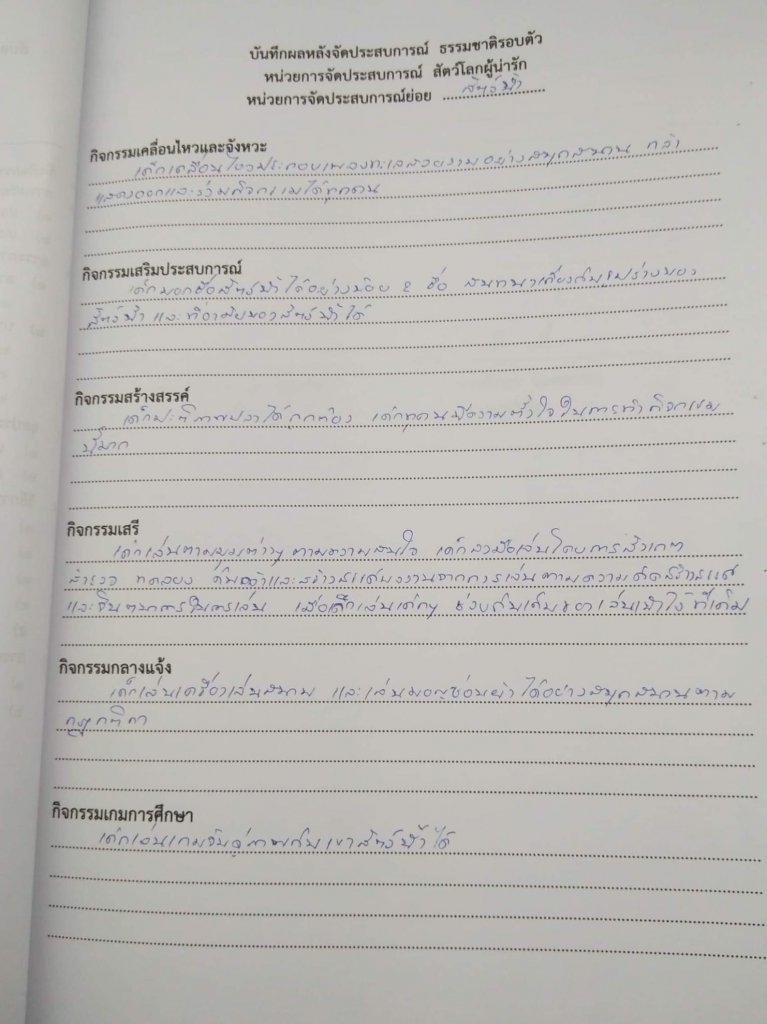 บันทึกผลหลังจัดประสบการณ์ ธรรมชาติรอบตัว
หน่วยการจัดประสบการณ์ สัตว์โลกผู้น่ารัก
หน่วยการจัดประสบการณ์ย่อย สัตว์น้ำ
กิจกรรมเคลื่อนไหวและจังหวะ
เด็กเคลื่อนไหวประกอบเพลงทะเลสวยงามอย่างสนุกสนาน กล้า
แสดงออกและร่วมกิจกรรมได้ทุกคน
กิจกรรมเสริมประสบการณ์
เด็กบอกชื่อสัตว์น้ำได้อย่างน้อย 2 ชื่อ สนทนาเกี่ยวกับรูปร่างของ
สัตว์น้ำ และที่อาศัยของสัตว์น้ำได้
กิจกรรมสร้างสรรค์
เด็กปะติดภาพปลาได้ถูกต้อง เด็กทุกคนมีความตั้งใจในการทำกิจกรรม
นี้มาก
กิจกรรมเสรี
เด็กเล่นตามมุมต่างๆ ตามความสนใจ เด็กลงมือเล่นโดยการสังเกต
สำรวจ ทดลอง ค้นคว้าและสร้างสรรค์ผลงานจากการเล่นตามความคิดสร้างสรรค์
และจินตนาการในการเล่น เมื่อเด็กเล่นเด็กๆ ช่วยกันเก็บของเล่นเข้าไว้ที่เดิม
กิจกรรมกลางแจ้ง
เด็กเล่นเครื่องเล่นสนาม และเล่นมอญซ่อนผ้าได้อย่างสนุกสนานตาม
กฎกติกา
กิจกรรมเกมการศึกษา
เด็กเล่นเกมจับคู่ภาพกับเงาสัตว์น้ำได้